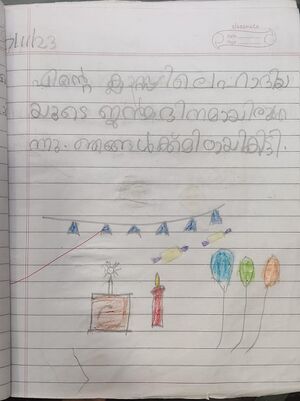 classmate
Date
Page
7/11/23
എന്റെ ക്ലാസ്സിലെ റാദിയ
യുടെ ജന്മദിനമായിരു
ന്നു. ഞങ്ങൾക്ക് മിഠായി കിട്ടി.